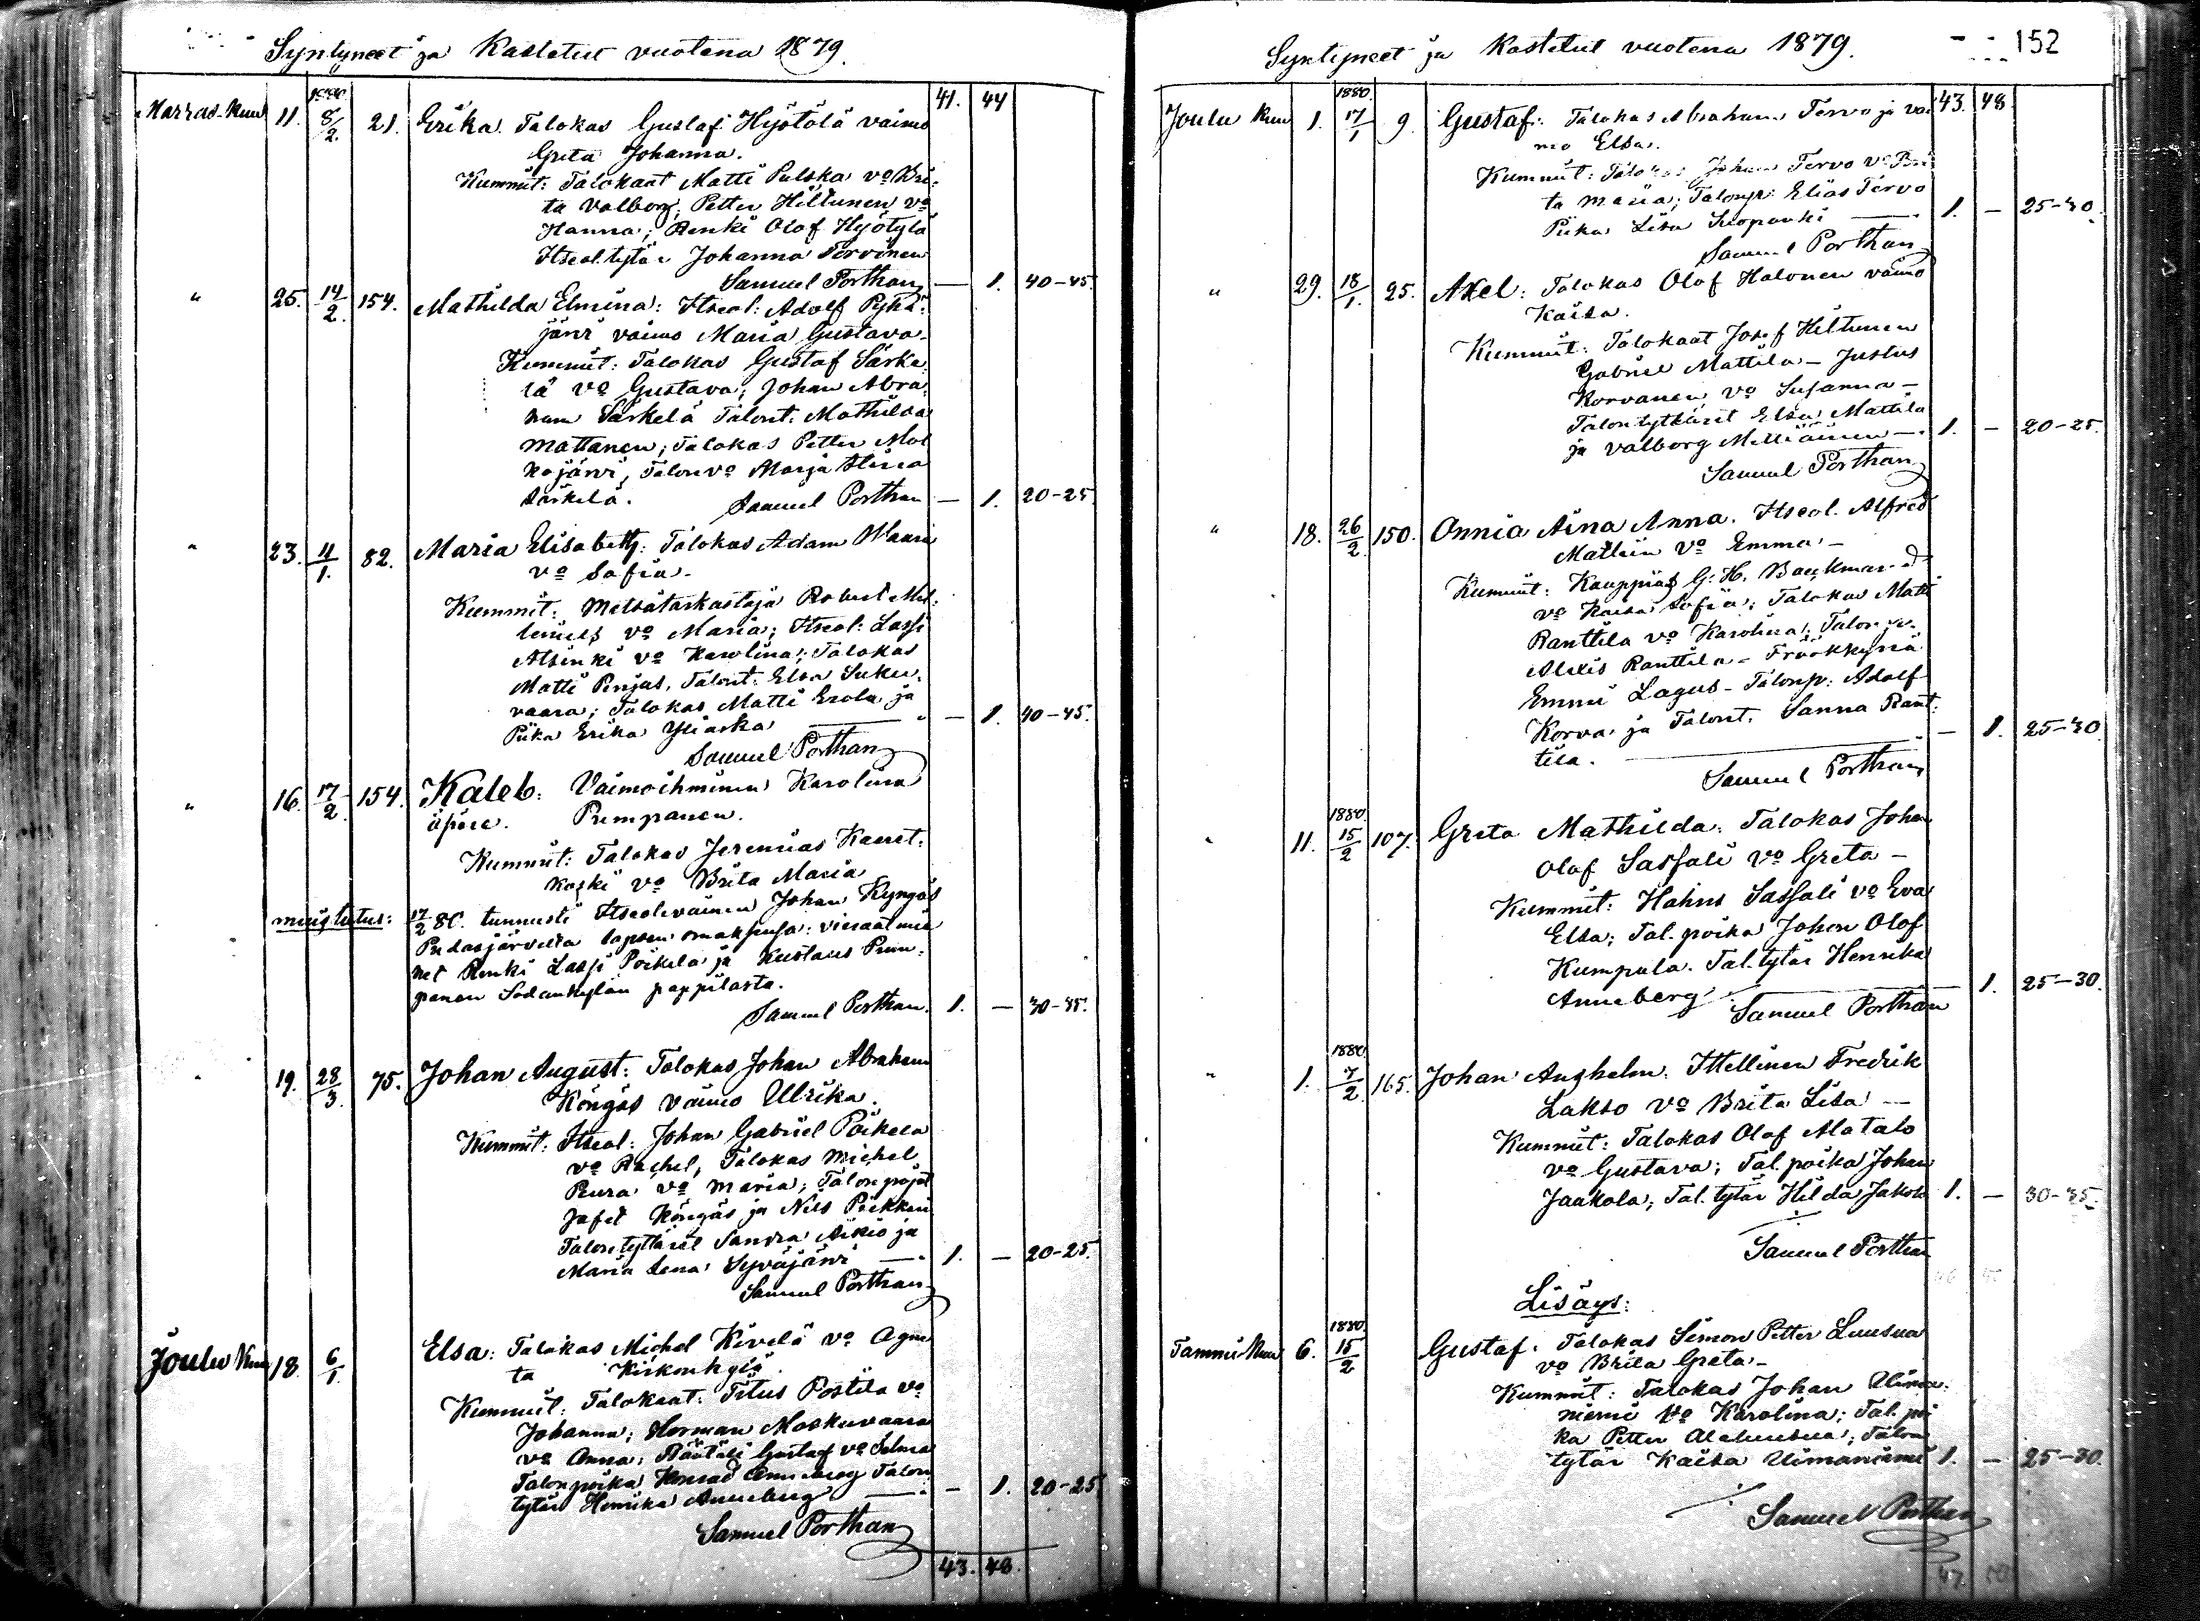 Syntyneet ja Kastetut vuotena 1879.
Marras-Kuu 11. 1880 8/2. 21. Erika. Talokas Gustaf Hyötölä vaimo 41. 44
Greta Johanna.
Kummit: Talokaat Matti Pulska vo Bri-
ta Valborg; Petter Hiltunen vo
Hanna; Renki Olof Hyötylä
Itseol. tytär Johanna Torvinen
Samuel Porthan — 1. 40-45.
" 25. 14/2. 154. Mathilda Elmina: Itseol: Adolf Pyhä-
järvi vaimo Maria Gustava.
Kummit: Talokas Gustaf Särke
lä vo Gustava; Johan Abra
ham Särkelä Talont. Mathilda
Mattanen; Talokas Petter Mol
kojärvi, Talon vo Marja Stina
Särkelä. Samuel Porthan — 1. 20-25
" 23. 11/1. 82. Maria Elisabeth: Talokas Adam Waara
vo Sofia.
Kummit: Metsätarkastaja Robert Mel-
lenius vo Maria; Itseol: Lassi
Alsinki vo Karolina; Talokas
Matti Pinjus, Talont: Elsa Suku-
vaara; Talokas Matti Erola ja
Piika Erika Yliaska — 1. 40-45.
Samuel Porthan
" 16. 17/2. 154. Kaleb: Vaimoihminen Karolina
äpärä. Pumpanen.
Kummit: Talokas Jeremias Kaaret-
koski vo Brita Maria
muistutus: 17/2 80. tunnusti Itseolevainen Johan Kyngäs
Pudasjärveltä lapsen omaksensa: vieraat mie
het Renki Lassi Poikela ja Kustaus Pum-
panen Sodankylän pappilasta.
Samuel Porthan. 1. — 30-35.
" 19. 28/3. 75. Johan August: Talokas Johan Abraham
Köngäs vaimo Ulrika.
Kummit: Itseol: Johan Gabriel Poikela
vo Rachel, Talokas Michel
Peura vo Maria; Talonpojat
Jafet Köngäs ja Nils Peikkin
Talontyttäret Sandra Aikio ja
Maria Lena Syväjärvi — 1. — 20-25.
Samuel Porthan
Joulu Kuu 18. 6/1. Elsa: Talokas Michel Kivelä vo Agne
ta Kirkonkylä.
Kummit: Talokaat: Titus Postila vo
Johanna; Herman Moskuvaara
vo Anna; Räätäli Gustaf vo Selma
Talonpoika Konrad Anneberg Talon
tytär Henrika Anneberg — 1. 20-25
Samuel Porthan
43. 48.
Syntyneet ja Kastetut vuotena 1879. 152
Joulu Kuu 1. 1880. 17/1 9. Gustaf: Talokas Abraham Tervo ja vai 43. 48.
mo Elsa.
Kummit: Talokas Johan Tervo vo Bri
ta Maria; Talonp: Elias Tervo
Piika Lisa Kuopanki — 1. — 25-30.
Samuel Porthan
" 29. 18/1. 25. Axel: Talokas Olof Halonen vaimo
Kaisa.
Kummit: Talokaat Josef Hiltunen
Gabriel Mattila — Justus
Korvanen vo Susanna —
Talontyttäret Elsa Mattila
ja Valborg Melläinen — 1. — 20-25.
Samuel Porthan
" 18. 26/2 150. Onnia Aina Anna. Itseol. Alfred
Mattein vo Emma —
Kummit: Kauppias G. H. Backman
vo Kaisa Sofia; Talokas Matti
Ranttila vo Karolina; Talonp.
Alexis Ranttila — Fröökkynä
Emmi Lagus — Talonp: Adolf
Korva ja Talont. Sanna Rant-
tila. — 1. 25-30
Samuel Porthan
" 11. 1880 15/2 107. Greta Mathilda: Talokas Johan
Olof Sassali vo Greta —
Kummit: Hahns Sassali vo Eva
Elsa; Tal. poika Johan Olof
Kumpula. Tal. tytär Henrika
Anneberg — 1. 25-30.
Samuel Porthan
" 1. 1880 7/2 165. Johan Anshelm: Ittellinen Fredrik
Lakso vo Brita Lisa —
Kummit: Talokas Olof Alatalo
vo Gustava; Tal. poika Johan
Jaakola; Tal. tytär Hilda Jakola 1. — 30-35.
Samuel Porthan
Lisäys:
Tammi Kuu 6. 1880 15/2 Gustaf: Talokas Simon Petter Luusua
vo Brita Greta —
Kummit: Talokas Johan Uiman-
niemi vo Karolina; Tal. poi
ka Petter Alaluusua; Talon
tytär Kaisa Uimaniemi 1. — 25-30.
Samuel Porthan